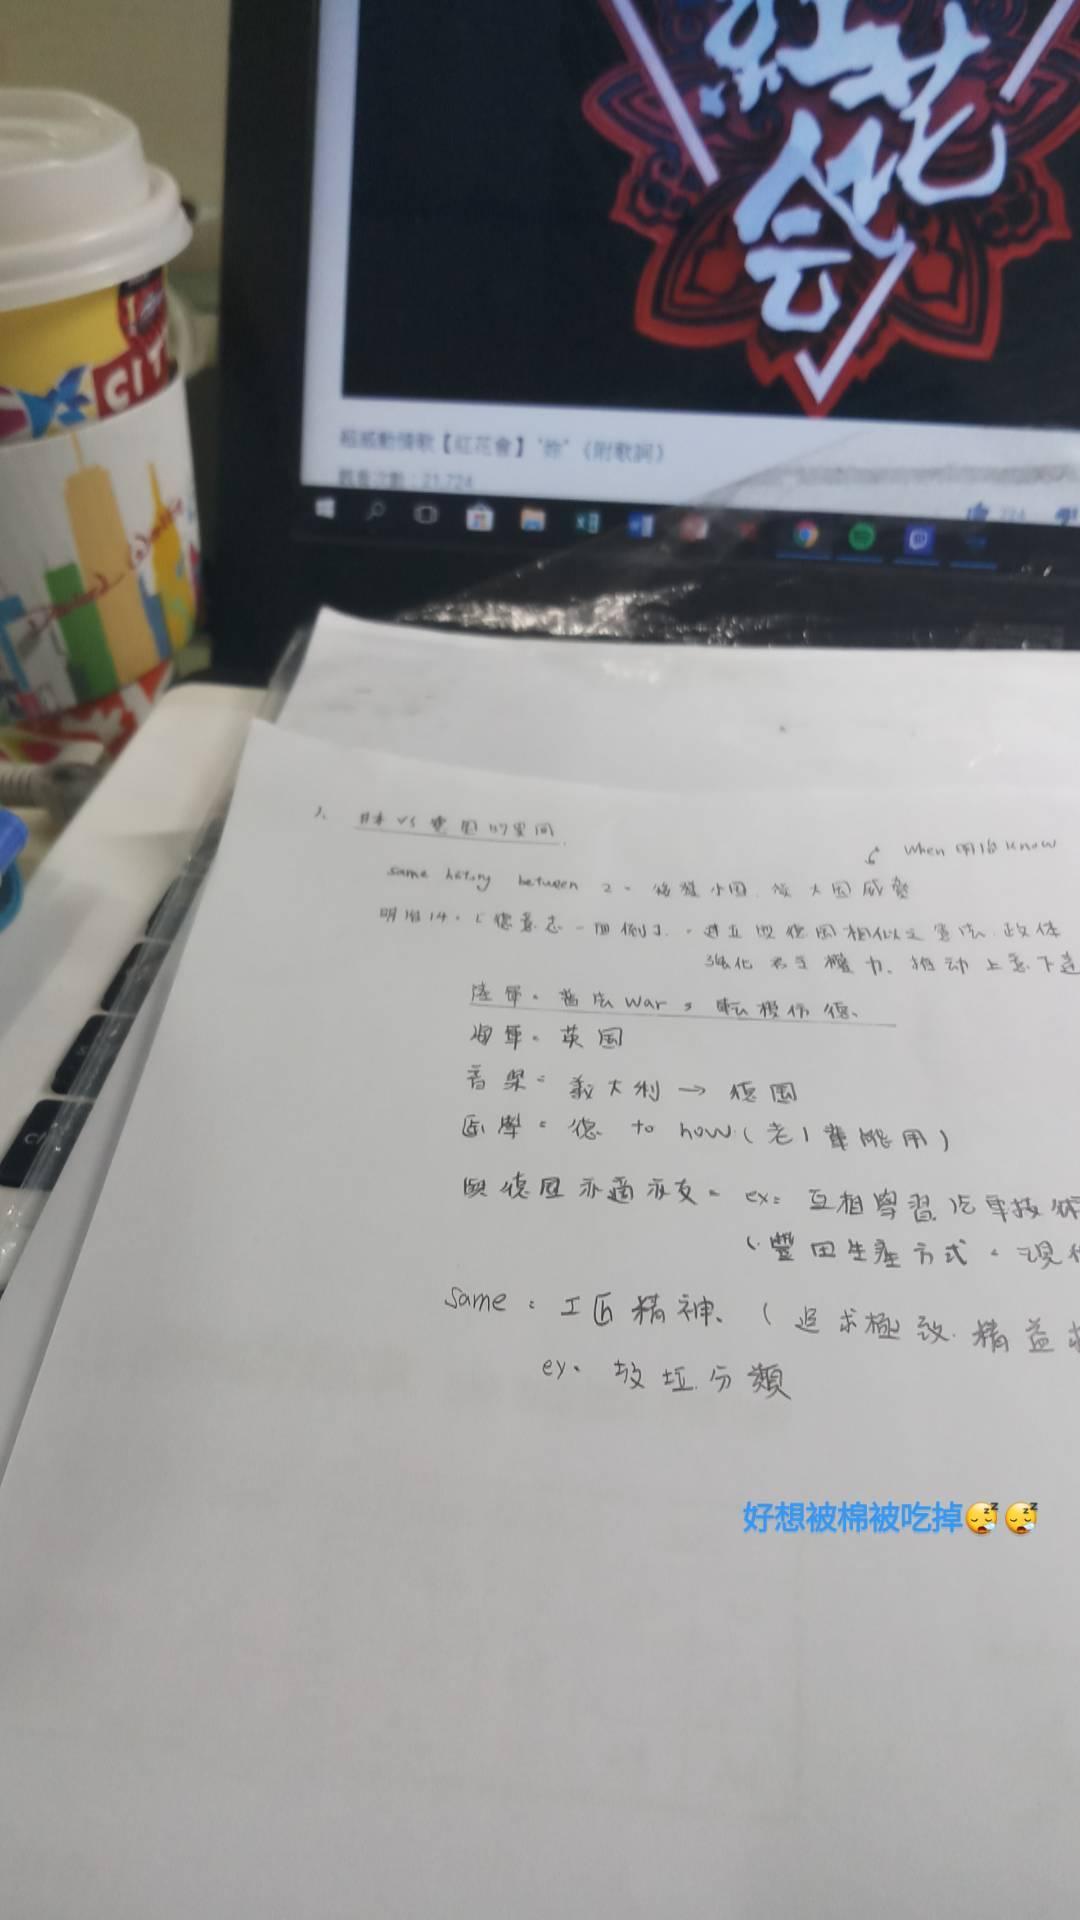 紅花
会
CIT
超感動情歌【紅花會】"妳"（附歌詞）
觀看次數：21,724
224
1. 日本 vs 德国的異同
when 明治 know
same history between 2 = 後發小国. 後大国威脅
明治14. 「德意志一面倒」. 建立與德国相似之憲法.政体
強化君主權力、推动上意下達
陸軍. 普法war → 転模仿德、
海軍. 英国
音楽 = 義大利 → 德国
医學 = 德 to now (老1輩能用)
與德国亦商亦友. ex: 互相學習汽車技術
(豐田生産方式.
same : 工匠精神、(追求極致.精益求
ex. 垃圾分類
好想被棉被吃掉😴😴